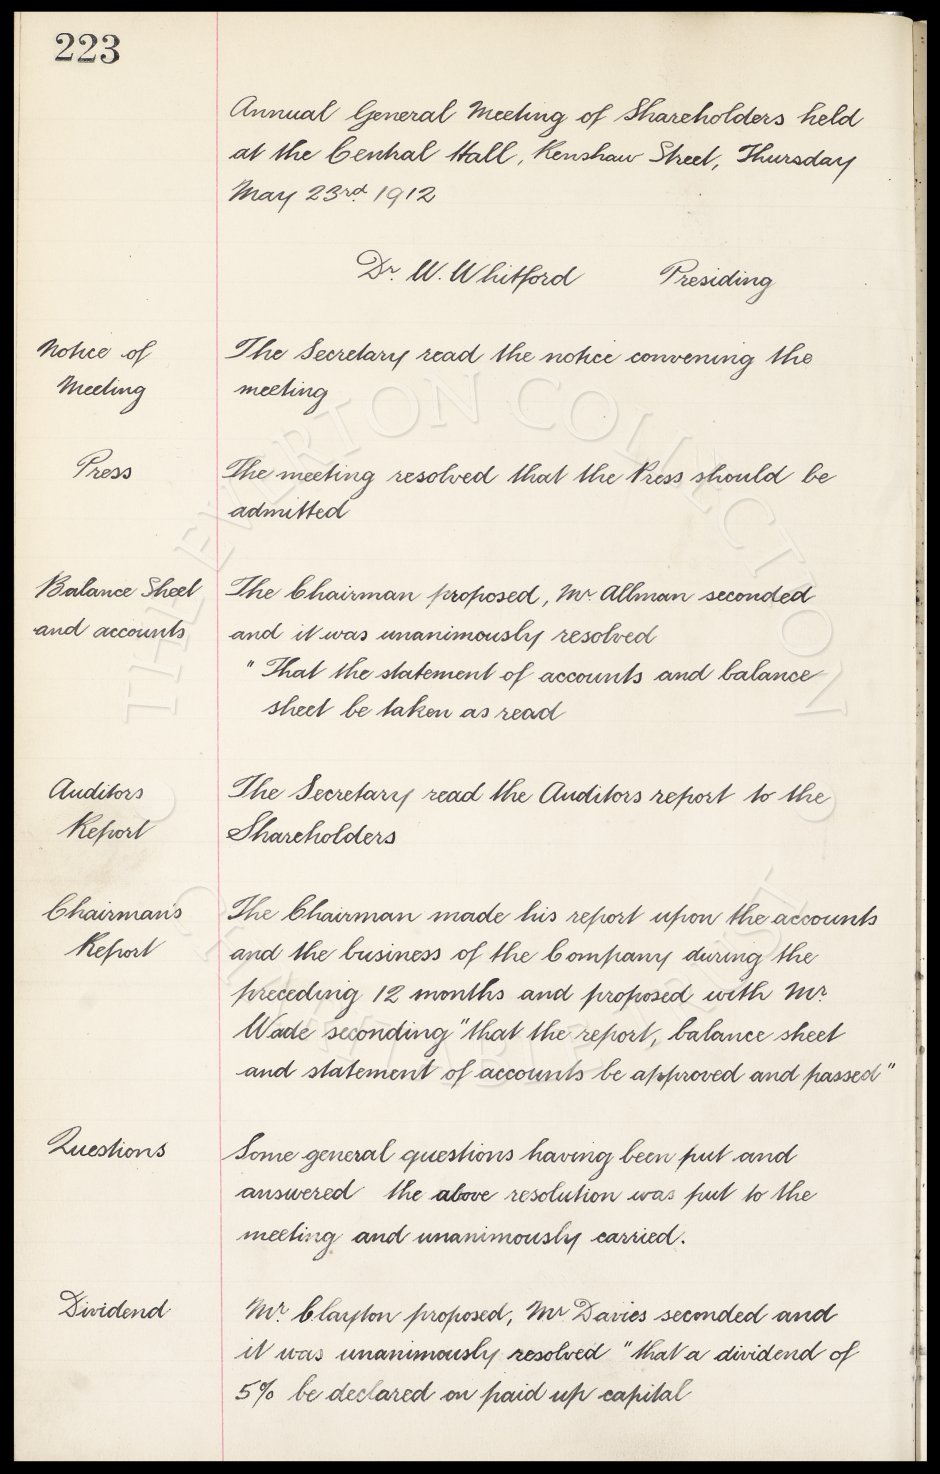 223
Annual General Meeting of Shareholders held
at the Central Hall, Renshaw Street, Thursday
May 23rd 1912
Dr. W. Whitford Presiding
Notice of
Meeting
The Secretary read the notice convening the
meeting
Press
The meeting resolved that the Press should be
admitted
Balance Sheet
and accounts
The Chairman proposed, Mr. Allman seconded
and it was unanimously resolved
" That the statement of accounts and balance
sheet be taken as read
Auditors
Report
The Secretary read the Auditors report to the
Shareholders
Chairman's
Report
The Chairman made his report upon the accounts
and the business of the Company during the
preceding 12 months and proposed with Mr.
Wade seconding "that the report, balance sheet
and statement of accounts be approved and passed"
Questions
Some general questions having been put and
answered the above resolution was put to the
meeting and unanimously carried.
Dividend
Mr. Clayton proposed, Mr Davies seconded and
it was unanimously resolved "that a dividend of
5% be declared on paid up capital
THE EVERTON COLLECTION